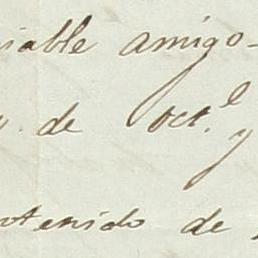 iable amigo-
de octe. y
otenido de